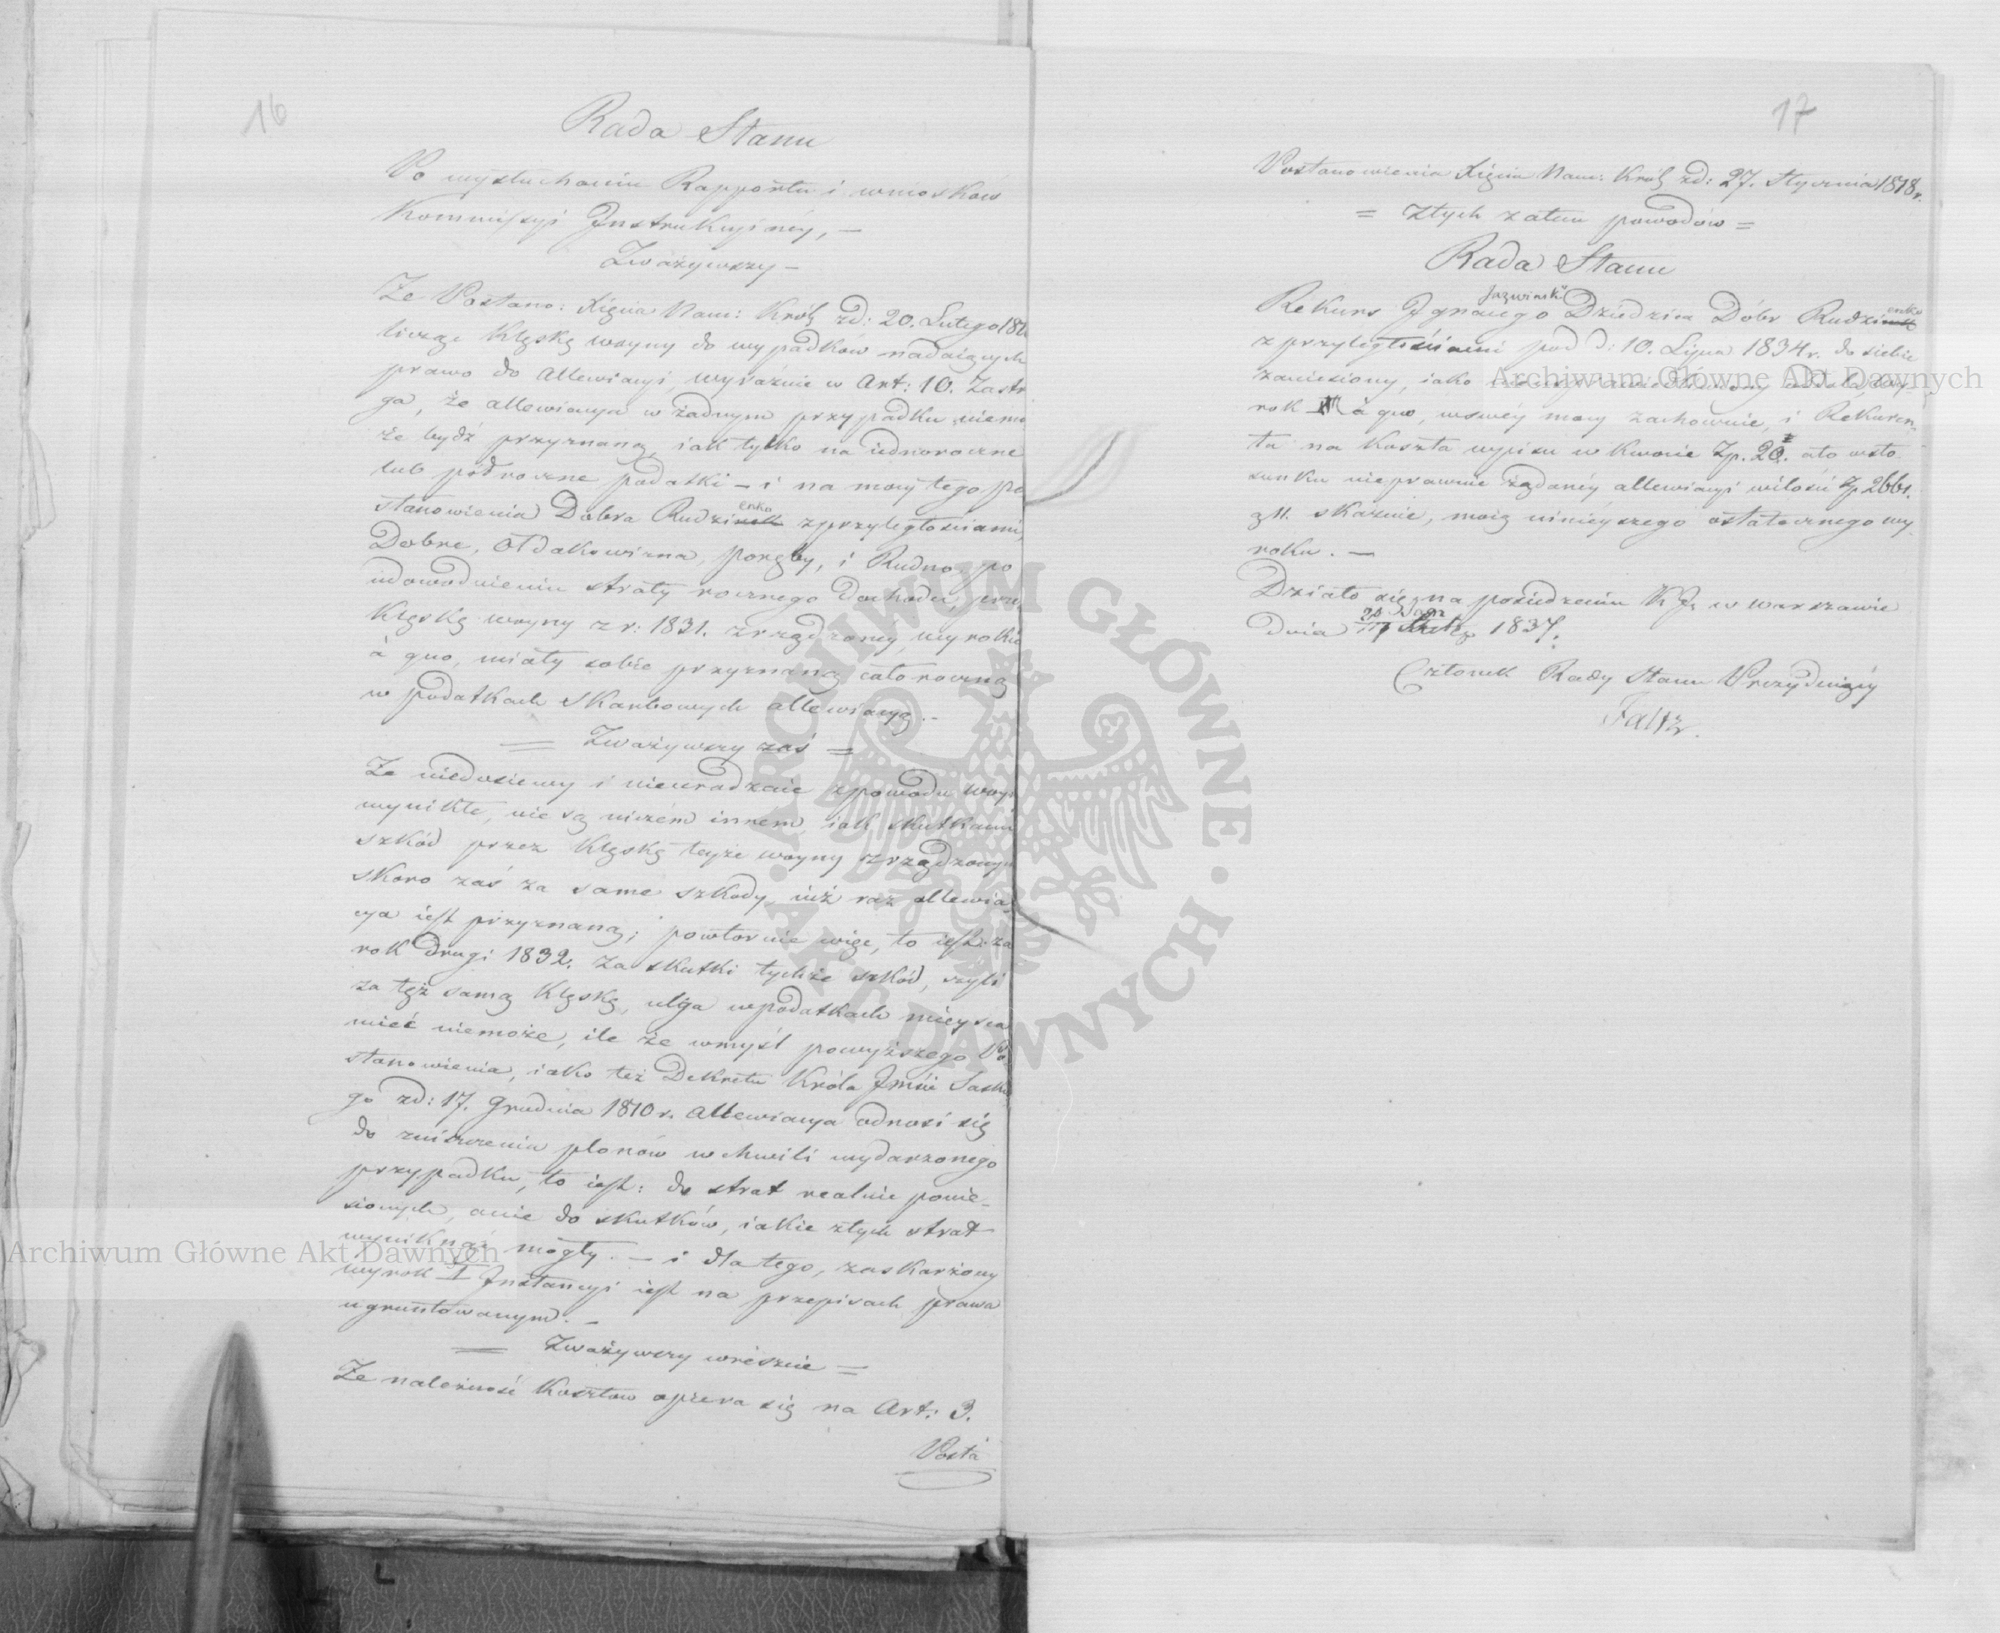 16
Rada Stanu
Po wysłuchaniu Rapportu i wniosków
Kommissyi Instrukcyinéy, —
Zważywszy —
Że Postano: Xięcia Nam: Król: zd: 20. Lutego
licząc klęskę woyny do wypadków nadaiących
prawo do allewiacyi, wyraźnie w Art: 10. Zastr
ga, że allewiacya w żadnym przypadku niemo
że bydź przyznaną, iak tylko na iednoroczne
lub półroczne podatki — i na mocy tego po
stanowienia Dobra Rudzienko z przyległościami,
Dobre, Ołdakowizna, Poręby, i Rudno, po
udowodnieniu straty rocznego dochodu, prze
klęskę woyny z r: 1831. zrządzoney, wyrokie
à quo, miały sobie przyznaną całoroczną
w podatkach skarbowych allewiacyą. —
= Zważywszy zaś =
Że niedosiewy i nieurodzaie z powodu woy
wynikłe, nie są niczém inném, iak skutkami
szkód przez klęskę teyże woyny zrządzonych
skoro zaś za same szkody, iuż raz allewia-
cya iest przyznaną; powtórnie więc, to iest: za
rok drugi 1832. za skutki tychże szkód, czyli
za tęż samą klęskę, ulga w podatkach mieysca
mieć niemoże, ile że w myśl powyższego Po
stanowienia, iako też Dekretu Króla Jmći Saski
go zd: 17. Grudnia 1810 r. allewiacya odnosi się
do zniszczenia plonów w chwili wydarzonego
przypadku, to iest: do strat realnie ponie-
sionych, a nie do skutków, iakie z tych strat
wyniknąć mogły. — i dla tego, zaskarżony
wyrok I Instancyi iest na przepisach prawa
ugruntowanym. —
= Zważywszy wreszcie =
Że należność kosztów opiera się na Art: 3.
Posta
17
Postanowienia Xięcia Nam: Król: zd: 27. Stycznia 1818 r.
= Z tych zatem powodów =
Rada Stanu
Rekurs Ignacego Jazwińsk. Dziedzica Dóbr Rudzienko
z przyległościami pod d: 10. Lipca 1834 r. do siebie
zaniesiony, iako
rok à quo, w swéy mocy zachownie, i Rekuren-
ta na koszta wpisu w kwocie Zp. 20. a to w sto
sunku nieprawnie żądanéy allewiacyi w ilości Zp 2661.
g 11. skaźnie, mocą ninieyszego ostatecznego wy-
roku. —
Działo się na posiedzeniu K. I. w Warszawie
dnia 1837.
Członek Rady Stanu Prezyduiący
Faltz.
Archiwum Główne Akt Dawnych
Archiwum Główne Akt Dawnych
ARCHIWUM GŁÓWNE AKT DAWNYCH